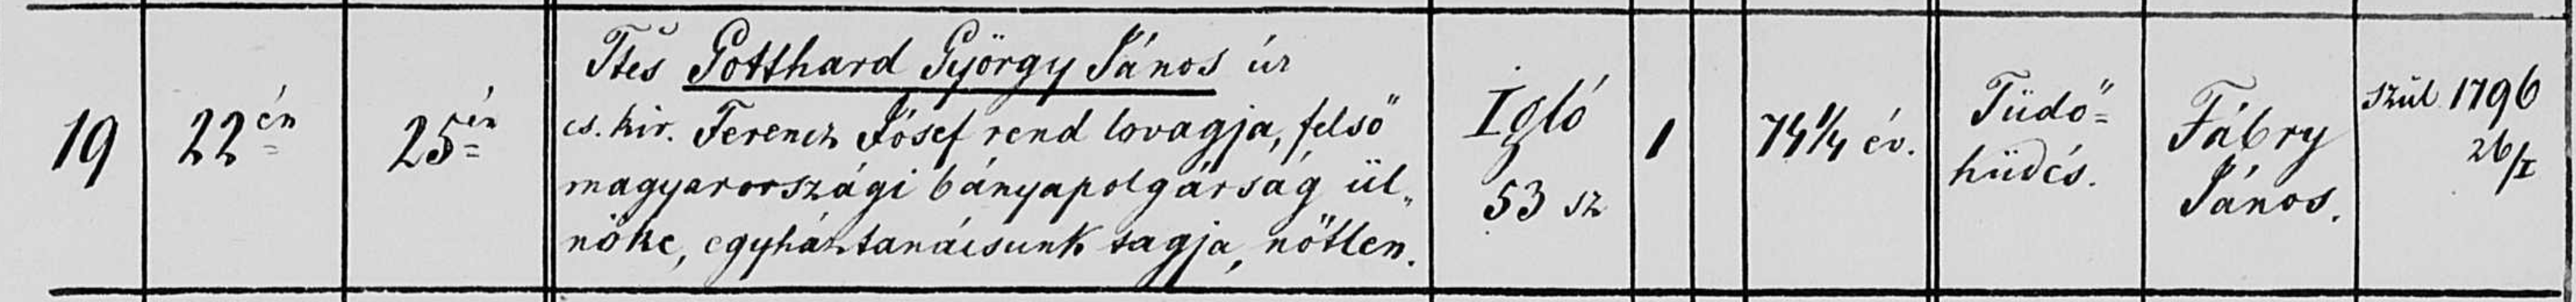 19
22én
25én
Ttes Gotthard György János úr
cs. kir. Ferencz Jósef rend lovagja, felső
magyarországi bányapolgárság ül„
nöke, egyháztanácsunk tagja, nőtlen.
Igló
53 sz
1
74 1/4 év.
Tüdő=
hüdés.
Fábry
János.
szül 1796
26/I